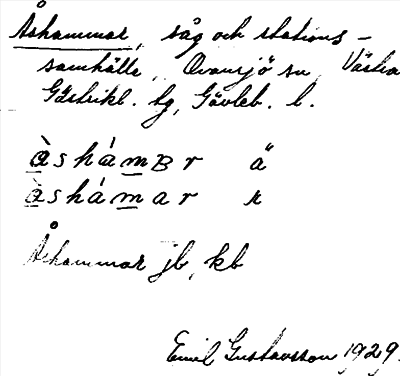 Åshammar, såg och stations-
samhälle, Ovansjö sn, Västra
Gästrikl. tg, Gävleb. l.
àshámʙr ä
àshámar r
Åshammar jb, kb
Emil Gustavsson 1929.